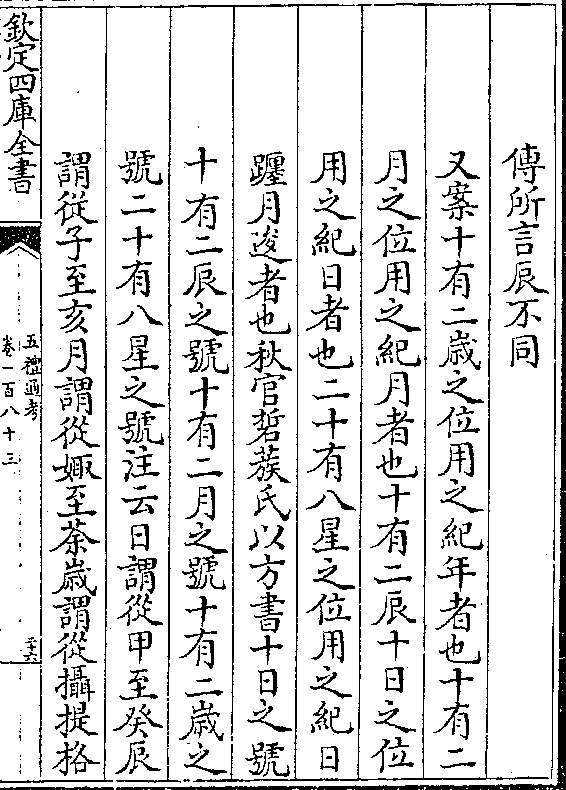 傳所言辰不同
又案十有二歳之位用之紀年者也十有二
月之位用之紀月者也十有二辰十日之位
用之紀日者也二十有八星之位用之紀日
躔月逡者也秋官硩蔟氏以方書十日之號
十有二辰之號十有二月之號十有二歳之
號二十有八星之號注云日謂從甲至癸辰
謂從子至亥月謂從娵至荼歳謂從攝提格
欽定四庫全書
五禮通考
卷一百八十三
二十六